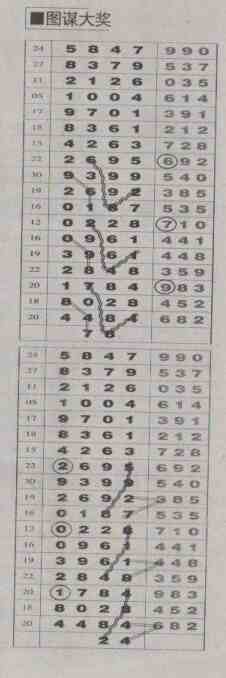 ■图谋大奖
24 5847 990
27 8379 537
11 2126 035
05 1004 614
17 9701 391
18 8361 212
13 4263 728
22 2695 692
30 9399 540
19 2692 385
16 0167 535
12 0228 710
16 0961 441
19 3961 448
22 2848 359
20 1784 983
18 8028 452
20 4484 682
78
5847 990
27 8379 537
11 2126 035
05 1004 614
17 9701 391
18 8361 212
13 4263 728
22 2695 692
30 9399 540
19 2692 385
16 0167 535
12 0228 710
16 0961 441
19 3961 448
22 2848 359
20 1784 983
18 8028 452
20 4484 682
24